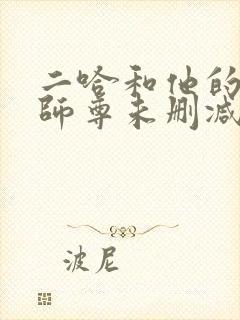 二哈和他的
师尊未删减
波尼